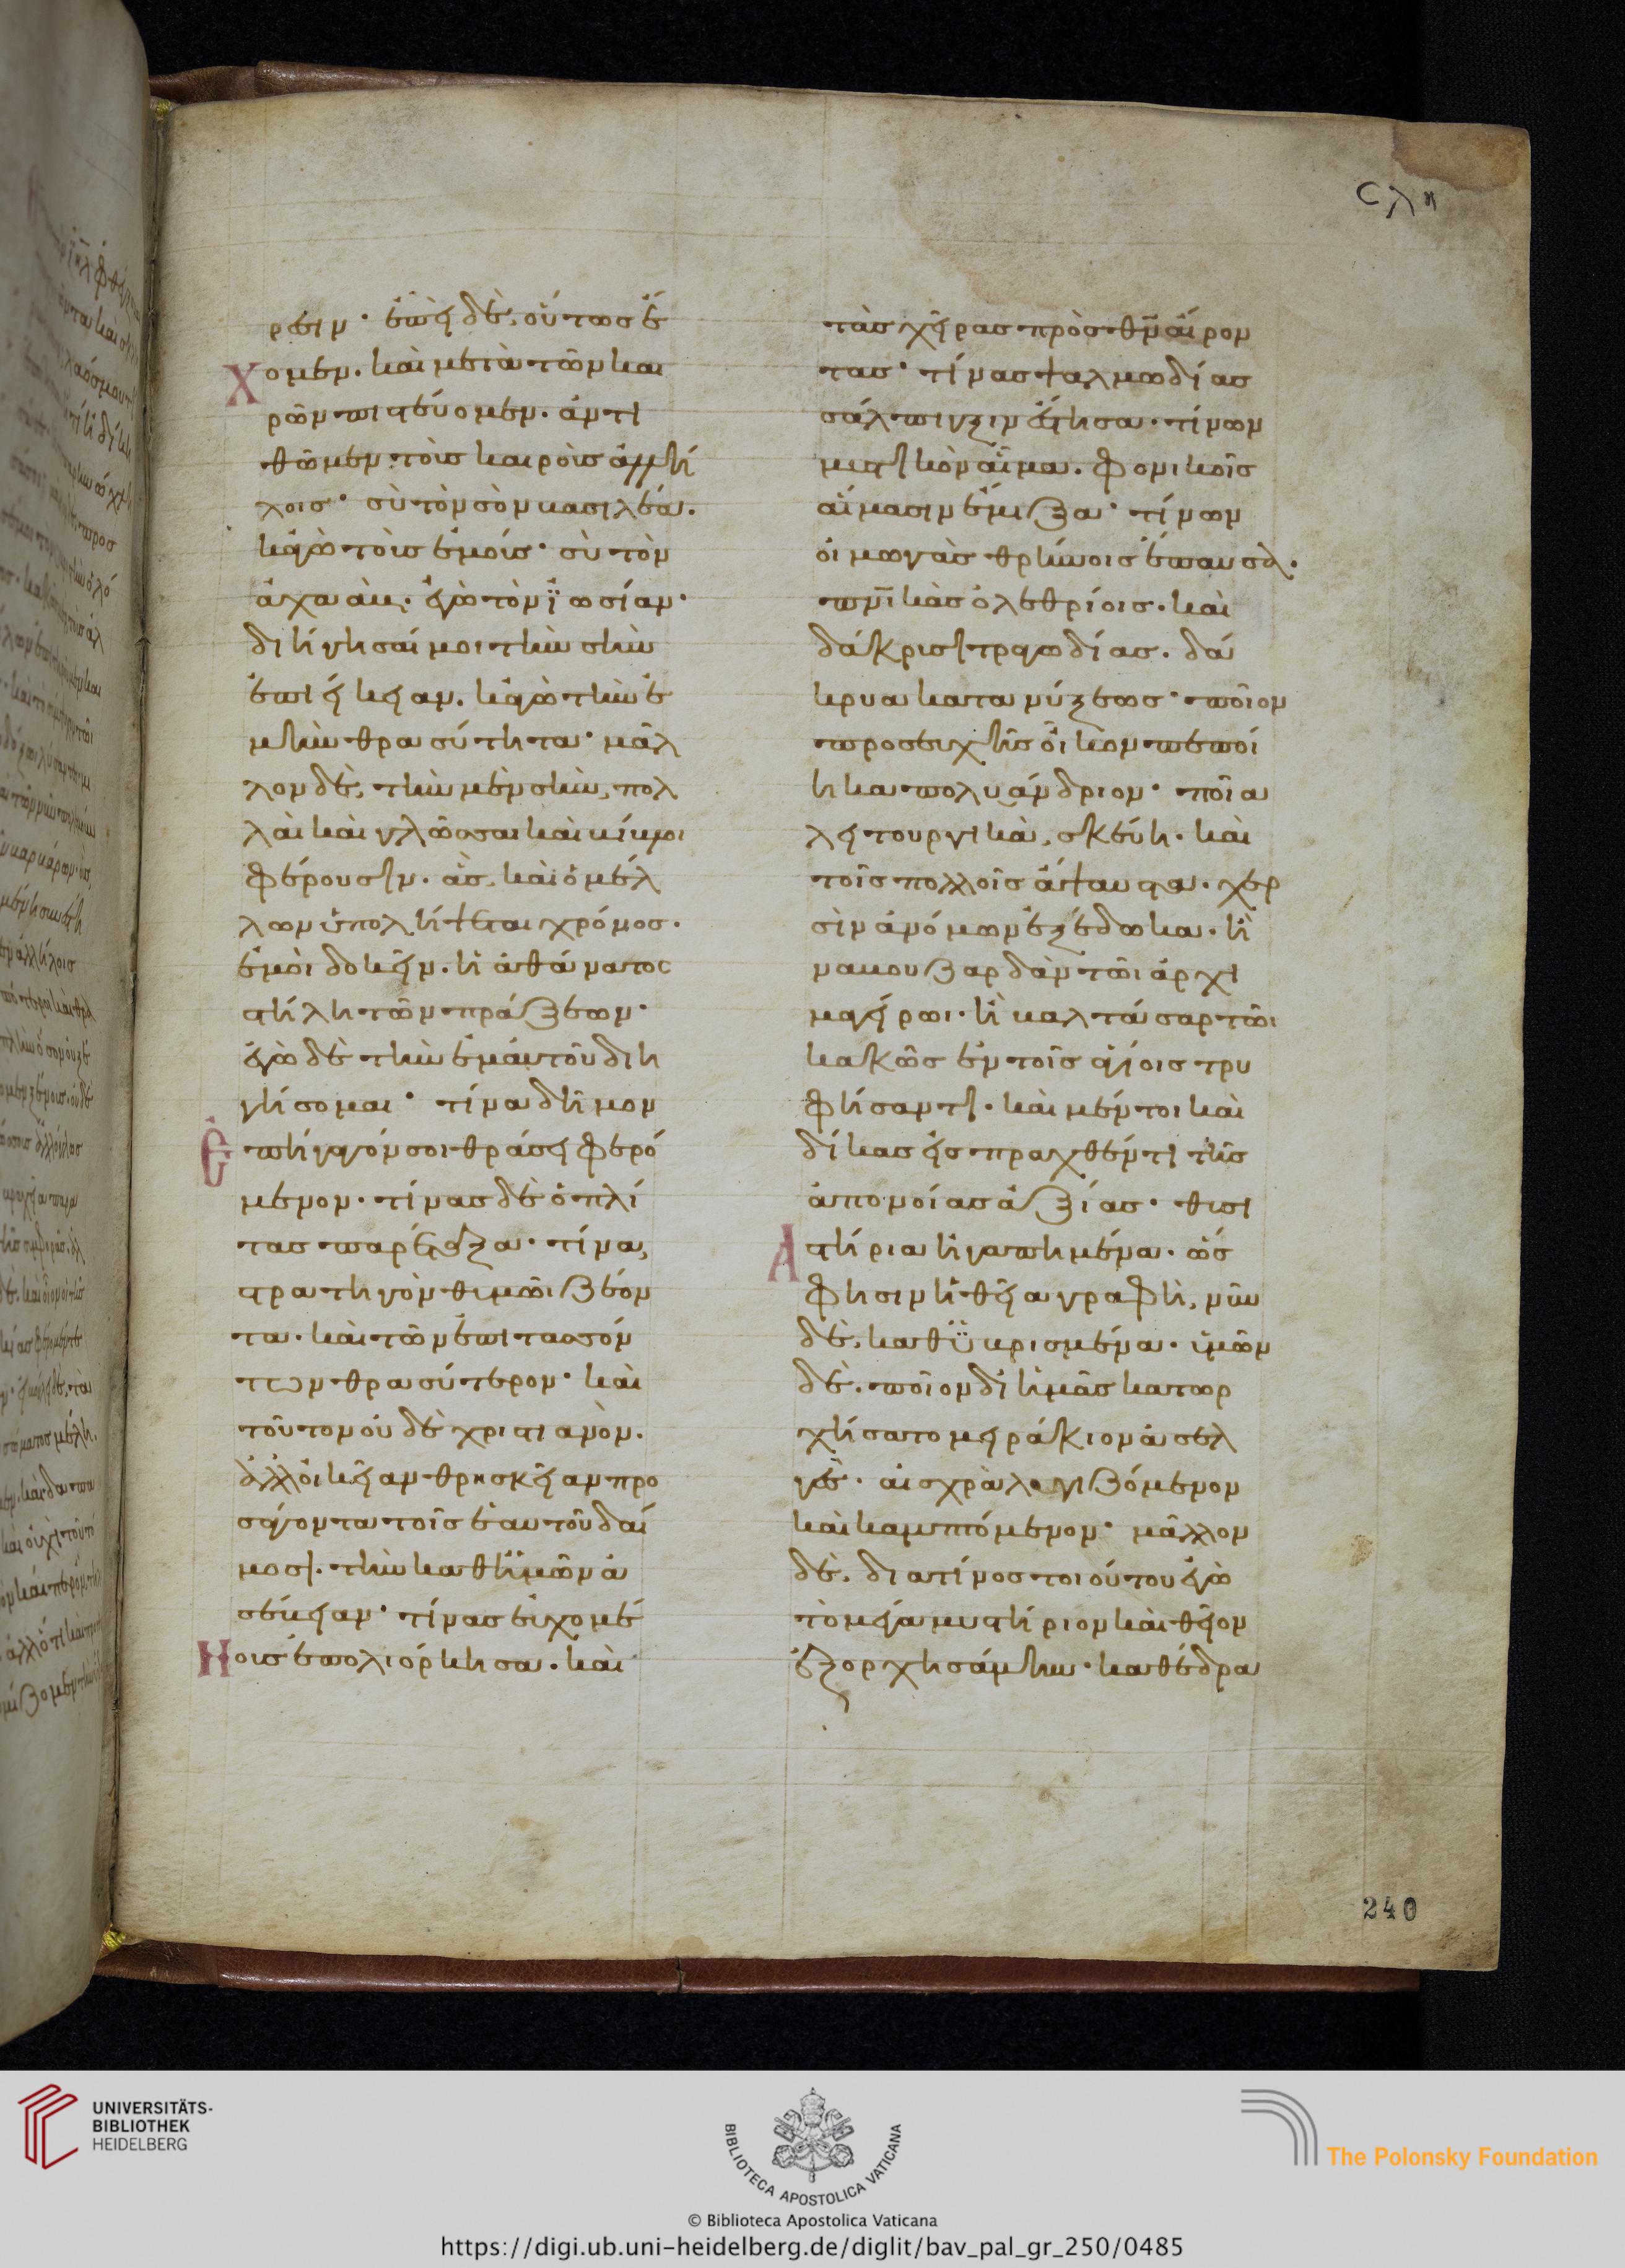 ϲλη
ρειν· ἐπεὶ δὲ, οὕτως ἔ
χομεν. καὶ μετὰ τῶν και
ρῶν πιστεύομεν. ἀντι
θῶμεν τοῖς καιροῖς ἀλλή
λοις· σὺ τὸν σὸν βασιλέα.
κἀγὼ τοῖς ἐμοῖς· σὺ τὸν
ἀχαάβ. ἐγὼ τὸν ϊωσίαν·
διήγησαί μοι τὴν σὴν
ἐπιείκειαν. κἀγὼ τὴν ἐ
μὴν θρασύτητα· μᾶλ
λον δὲ, τὴν μὲν σὴν, πολ
λαὶ καὶ γλῶσσαι καὶ βίβλοι
φέρουσιν. ἃς, καὶ ὁ μέλ
λων ὑπολήψεται χρόνος.
ἐμοὶ δοκεῖν. ἡ ἀθάνατος
στήλη τῶν πράξεων·
ἐγὼ δὲ τὴν ἐμαυτοῦ διη
γήσομαι· τίνα δῆμον
ἐπήγαγόν σοι θράσει φερό
μενον. τίνας δὲ ὁπλί
τας παρέταξα· τίνα,
στρατηγὸν θυμῶι ζέον
τα. καὶ τῶν ἐπιτασσόν
των θρασύτερον· καὶ
τοῦτον οὐδὲ χριστιανὸν.
ἀλλ' οἰκείαν θρησκείαν προ
σάγοντα τοῖς ἑαυτοῦ δαί
μοσι. τὴν καθ' ἡμῶν ἀ
σέβειαν· τίνας εὐχομέ
νους ἐπολιόρκησα. καὶ
τὰς χεῖρας πρὸς θν αἴρον
τας· τίνας ψαλμωδίας
σάλπιγξιν ἔστησα. τίνων
μυστικὸν αἷμα. φονικοῖς
αἵμασιν ἔμιξα· τίνων
οἰμωγὰς θρήνοις ἔπαυσα.
πνικὰς ὀλεθρίοις. καὶ
δάκρυσι τραγωδίας. δά
κρυα κατανύξεως· ποῖον
προσευχῆς οἶκον πεποί
ηκα πολυάνδριον· ποῖα
λειτουργικὰ, σκεύη. καὶ
τοῖς πολλοῖς ἄψαυστα. χερ
σὶν ἀνόμων ἐξέδωκα. ἢ
ναβουζαρδὰν τῶι ἀρχι
μαγείρωι. ἢ βαλτάσαρ τῶι
κακῶς ἐν τοῖς ἁγίοις τρυ
φήσαντι. καὶ μέντοι καὶ
δίκας εἰσπραχθέντι τῆς
ἀπονοίας ἀξίας· θυσι
αστήρια ἠγαπημένα. ὥς
φησιν ἡ θεία γραφὴ, νῦν
δὲ, καθϋβρισμένα. ὑμῶν
δὲ. ποῖον δι' ἡμᾶς κατωρ
χήσατο μειράκιον ἀσελ
γὲς. αἰσχρὰ λυγιζόμενον
καὶ καμπτόμενον· μᾶλλον
δὲ, διὰ τίνος τοιούτου ἐγὼ
τὸ μέγα μυστήριον καὶ θεῖον
ἐξορχησάμην· καθέδρα
240
UNIVERSITÄTS-
BIBLIOTHEK
HEIDELBERG
BIBLIOTECA APOSTOLICA VATICANA
The Polonsky Foundation
© Biblioteca Apostolica Vaticana
https://digi.ub.uni-heidelberg.de/diglit/bav_pal_gr_250/0485